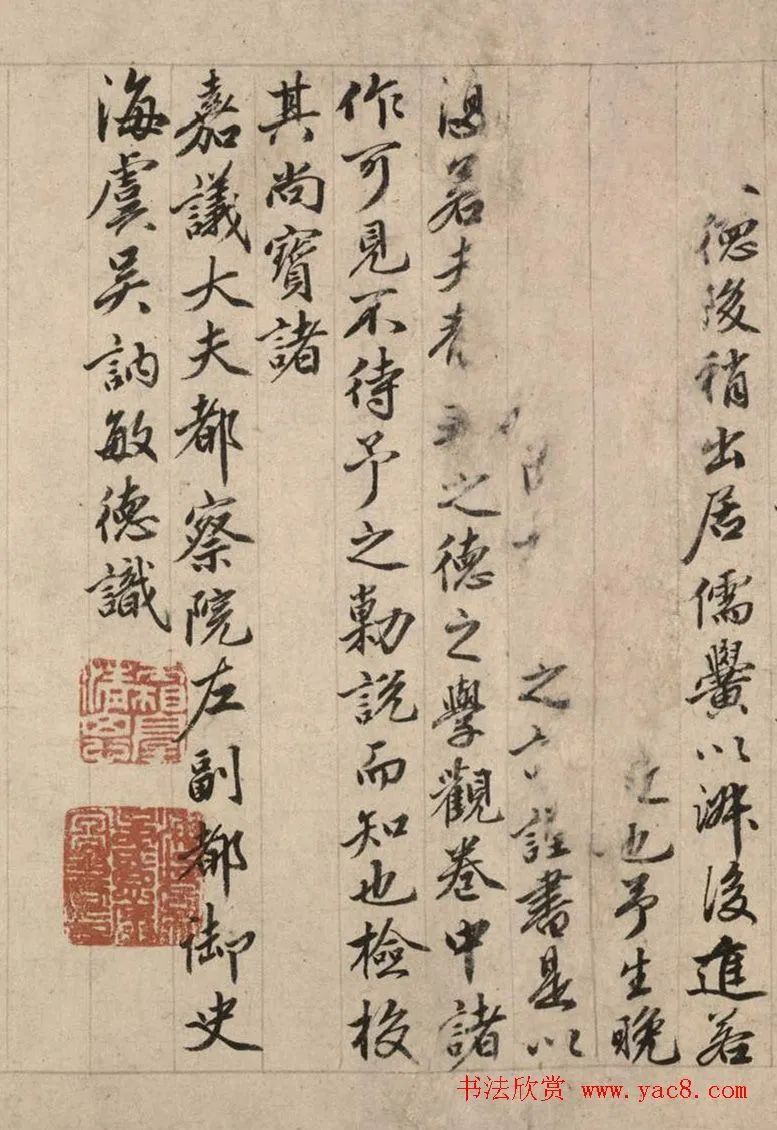 德後稍出居儒黌以淑後進若
也予生晚
之言謹書是以
若夫者之德之學觀卷中諸
作可見不待予之勦說而知也檢校
其尚寶諸
嘉議大夫都察院左副都御史
海虞吳訥敏德識
书法欣赏 www.yac8.com